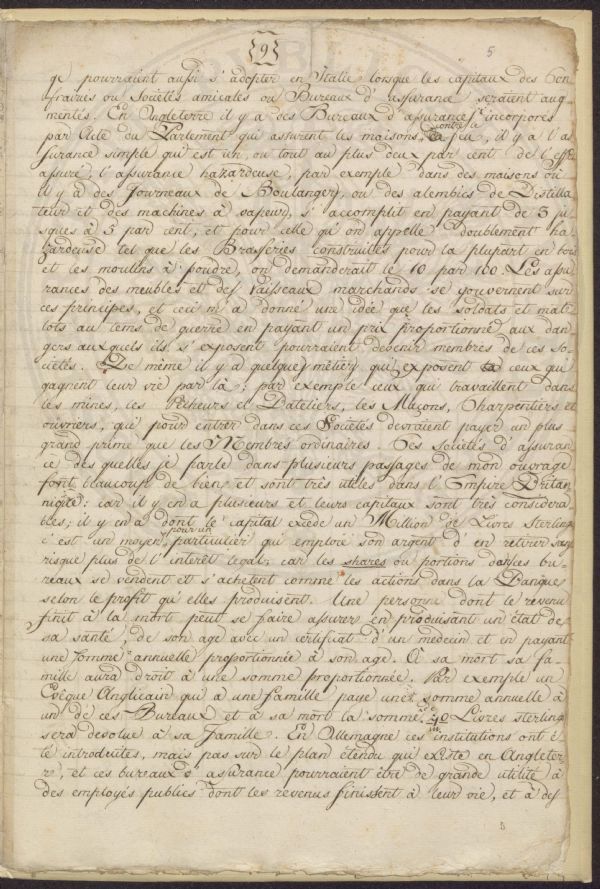 (9)
5
qe pourraient aussi s'adopter en Italie lorsque les capitaux des Con
frairies ou Societés amicales ou Bureaux d'assurance seraient aug-
mentés. En Angleterre il y a des Bureaux d'assurance incorporés
par Acte du Parlement qui assurent les maisons contre le feu, il y a l'as
surance simple qui est un, ou tout au plus deux par cent de l'effet
assuré, l'assurance hazardeuse, par exemple dans des maisons où
il y a des Fourneaux de Boulangers, ou des alembics de Distilla
teur et des machines à vapeur, s'accomplit en payant de 3 ju-
sques à 5 par cent, et pour celle qu'on appelle doublement ha
zardeuse tel que les Brasseries construites pour la plupart en bois
et les moulins à poudre, on demanderait le 10 par 100. Les assu
rances des meubles et des Vaisseaux marchands se gouvernent sur
ces principes, et ceci m'a donné une idée que les soldats et mate
lots au tems de guerre en payant un prix proportionné aux dan
gers auxquels ils s'exposent pourraient devenir membres de ces so-
cietés. De même il y a quelques métiers qui exposent ceux qui
gagnent leur vie par là; par exemple ceux qui travaillent dans
les mines, les Pêcheurs et Bateliers, les Maçons, Charpentiers et
ouvriers, qui pour entrer dans ces Societés devraient payer un plus
grand prime que les Membres ordinaires. Ces Societés d'assuran
ce des quelles je parle dans plusieurs passages de mon ouvrage
font beaucoup de bien, et sont très utiles dans l'Empire Britan
nique: car il y en a plusieurs et leurs capitaux sont très considera
bles; il y en a dont le capital excede un Million de Livres Sterling
c'est un moyen pour un particulier qui emploie son argent d'en retirer sans
risque plus de l'interêt legal; car les shares ou portions dans ces bu-
reaux se vendent et s'achetent comme les actions dans la Banque
selon le profit qu'elles produisent. Une personne dont le revenu
finit à la mort peut se faire assurer en produisant un état de
sa santé, de son age avec un certificat d'un medecin et en payant
une somme annuelle proportionnée à son age. à sa mort sa fa-
mille aura droit à une somme proportionnée. Par exemple un
Evêque Anglicain qui a une famille paye une somme annuelle à
un de ces Bureaux et à sa mort la somme Livres sterling
sera devolue à sa Famille. En Allemagne ces institutions ont é
té introduites, mais pas sur le plan étendu qui existe en Angleter
re, et ces bureaux d'assurance pourraient être de grande utilité à
des employés publics dont les revenus finissent à leur vie, et à des
5